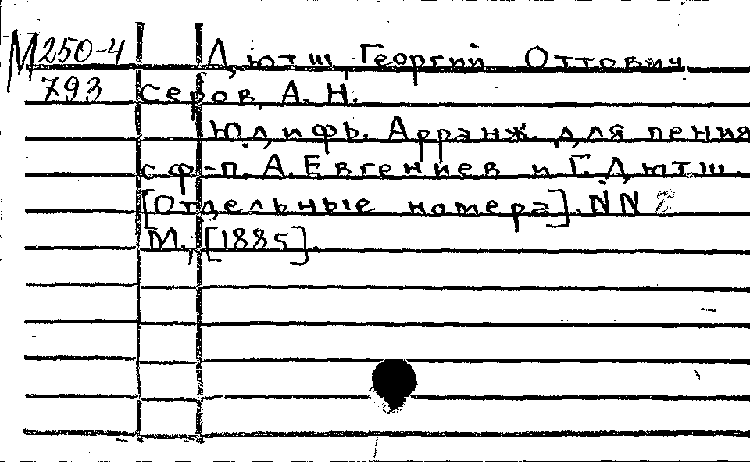 М250-4 Дютш, Георгий Оттович
793 Серов, А. Н.
Юдифь. Арранж. для пения
с ф-п. А. Евгениев и Г. Дютш.
[Отдельные номера]. NN
М., [1885].